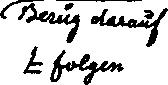 Bezug darauf
folgen